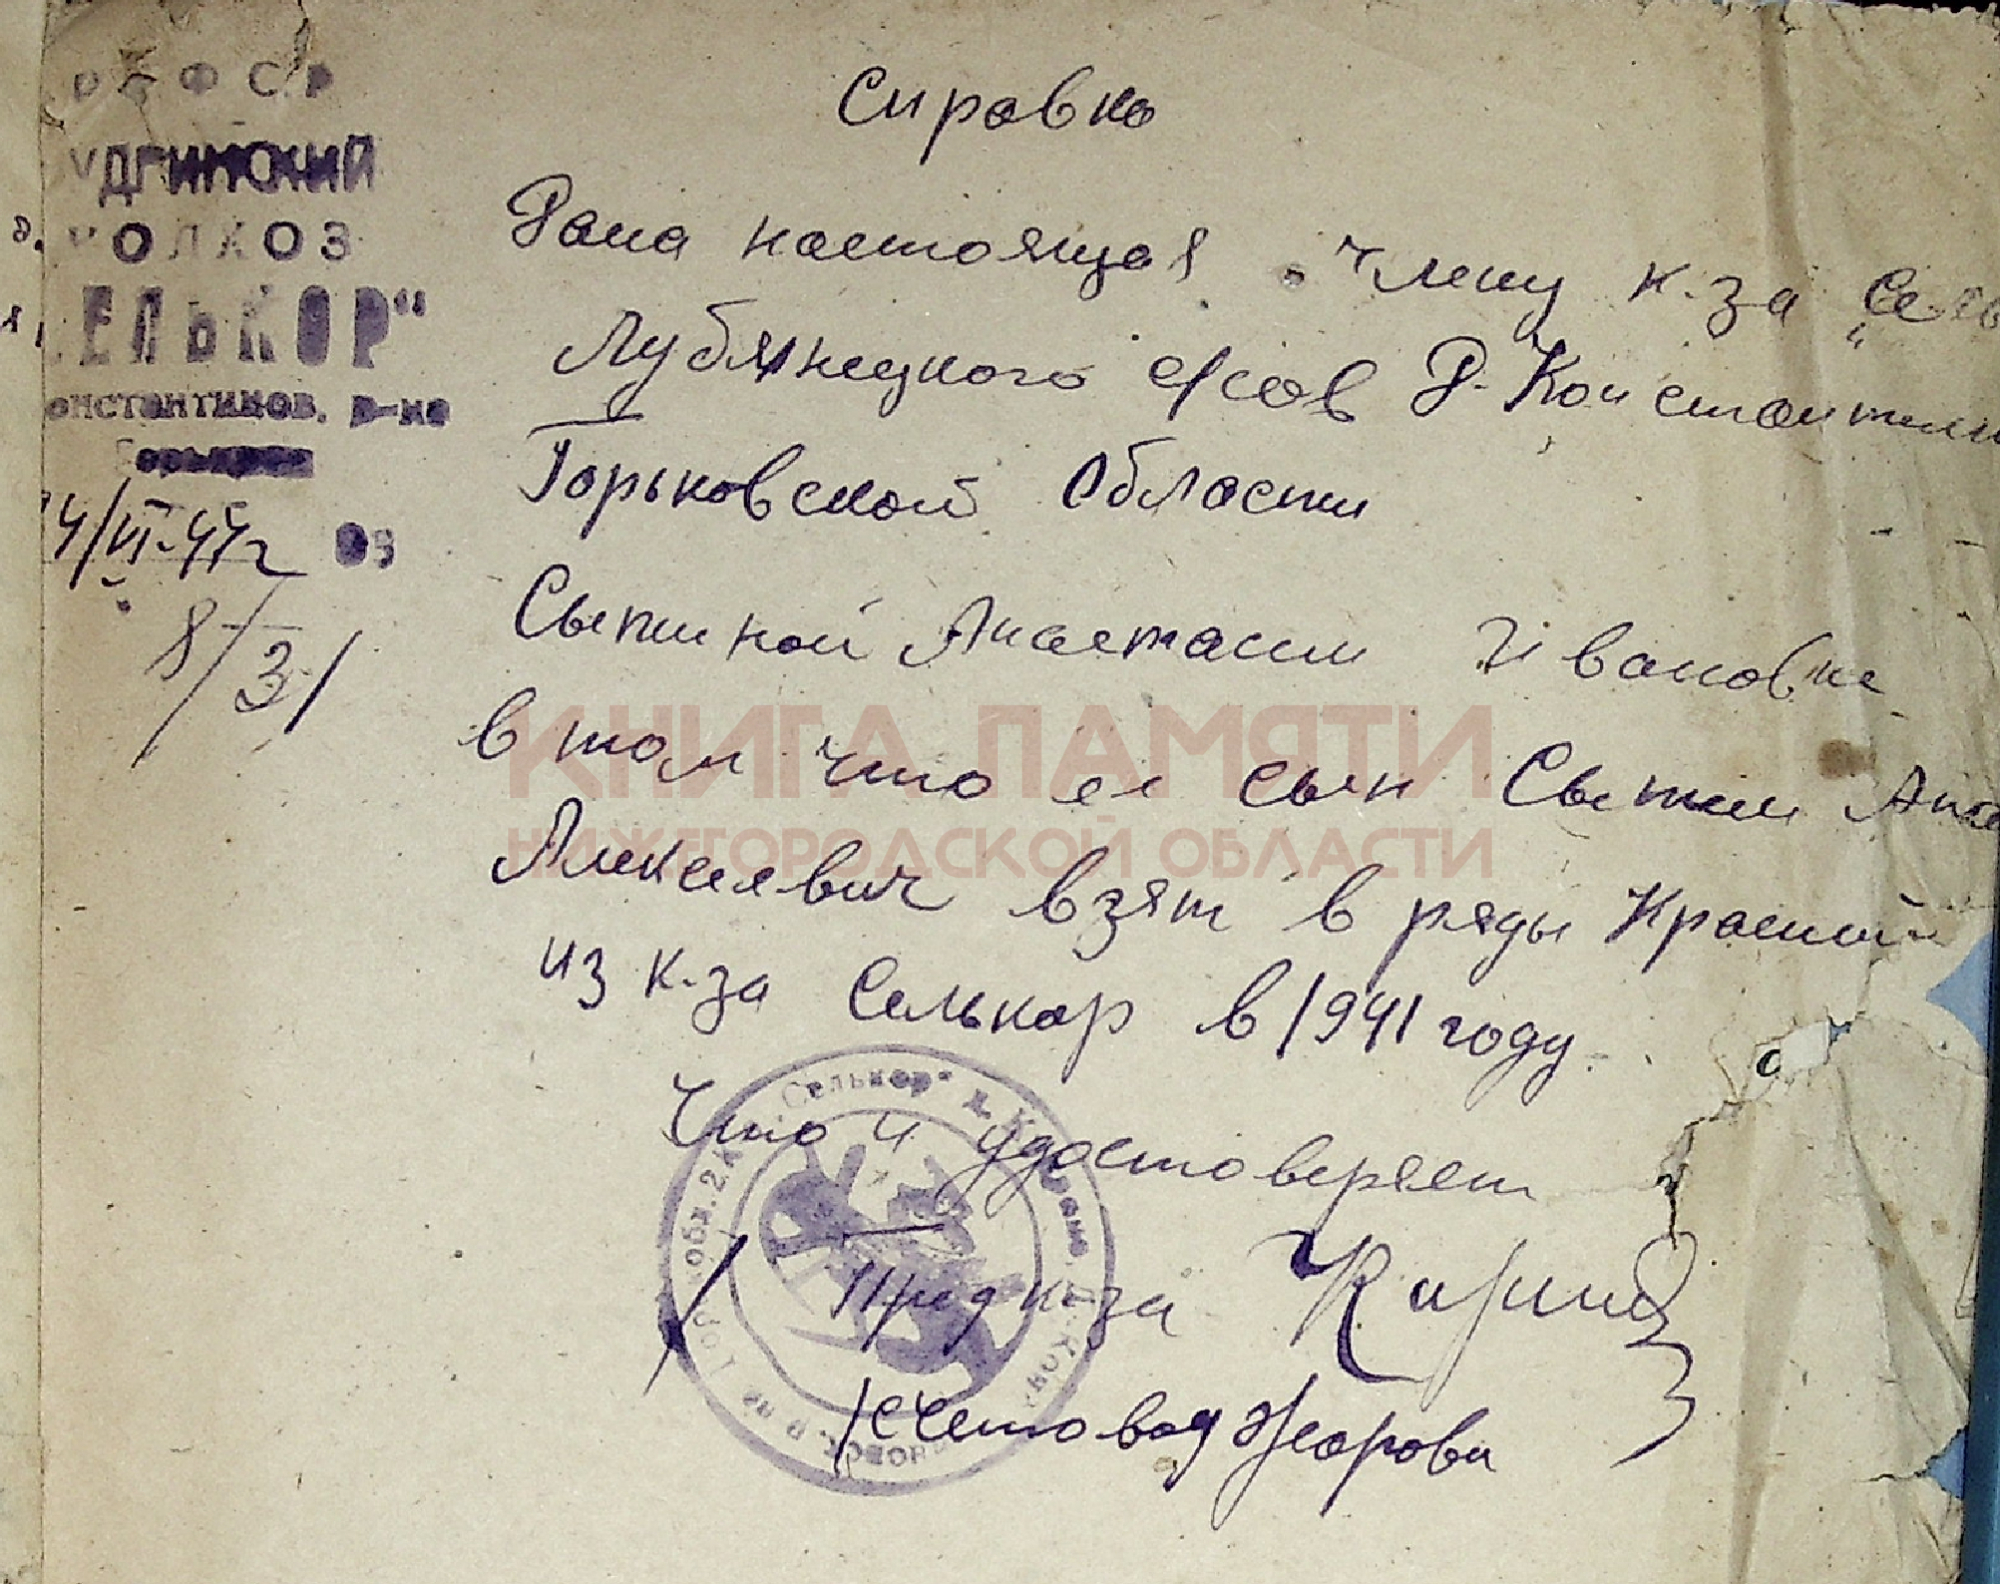 РСФСР
УДРИНСКИЙ
КОЛХОЗ
ЕЛЬКОР"
онстантинов. р-на
4/VI-47г
8/31
Справка
Дана настоящая члену к-за „Сель
Лубянецкого с/сов Р-Константин
Горьковской Области
Сытиной Анастасии Ивановне
в том что ее сын Сытин
Алексеевич взят в ряды Красной
из к-за Селькор в 1941 году.
Что и удостоверяет
Пред к-за
Счетовод Жарова
Селькор"
КНИГА ПАМЯТИ
НИЖЕГОРОДСКОЙ ОБЛАСТИ